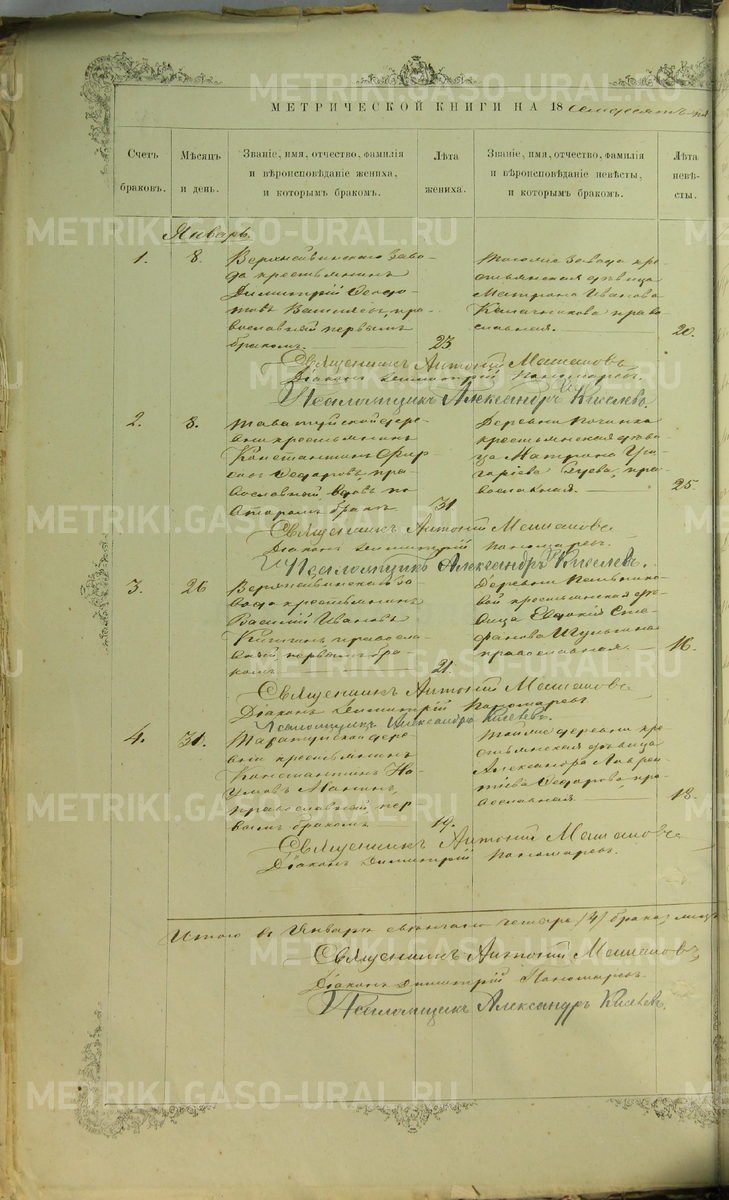 МЕТРИЧЕСКОЙ КНИГИ НА 18
Счетъ браковъ.
Мѣсяцъ и день.
Званіе, имя, отчество, фамилія и вѣроисповѣданіе жениха, и которымъ бракомъ.
Лѣта жениха.
Званіе, имя, отчество, фамилія и вѣроисповѣданіе невѣсты, и которымъ бракомъ.
Лѣта невѣсты.
Январь
1.
8.
Верхнейвинскаго заво-
да крестьянинъ
Димитрій Ѳедо-
товъ православный первымъ
бракомъ.
23
Тогоже завода кре-
стьянская дѣвица
Матрона Иванова
Калачникова право-
славная.
20.
Священникъ Антоній
Діаконъ Димитрій Пономаревъ.
Псаломщикъ Александръ Киселевъ.
2.
8.
Таватуйской дере-
вни крестьянинъ
Константинъ
Ѳедоровъ, пра-
вославный, вдовъ по
второмъ бракѣ
31
Деревни Починка
крестьянская дѣви-
ца Матрона Гри-
горіева пра-
вославная.
25.
Священникъ Антоній
Діаконъ Димитрій Пономаревъ.
Псаломщикъ Александръ Киселевъ.
3.
26
Верхнейвинскаго за-
вода крестьянинъ
Василій Ивановъ
православ-
ный, первымъ бра-
комъ
21.
Деревни
крестьянская дѣ-
вица Евдокія Сте-
фанова
православная.
16.
Священникъ Антоній
Діаконъ Димитрій Пономаревъ
Псаломщикъ Александръ Киселевъ.
4.
31.
Таватуйской дере-
вни крестьянинъ
Константинъ На-
умовъ Манинъ,
православный, пер-
вымъ бракомъ
19.
Тойже деревни кре-
стьянская дѣвица
Александра Лаврен-
тіева Ѳедорова, пра-
вославная
18.
Священникъ Антоній
Діаконъ Димитрій Пономаревъ.
Итого въ Январѣ четыре (4) брака
Священникъ Антоній
Діаконъ Димитрій Пономаревъ.
Псаломщикъ Александръ Киселевъ.
METRIKI.GASO-URAL.RU